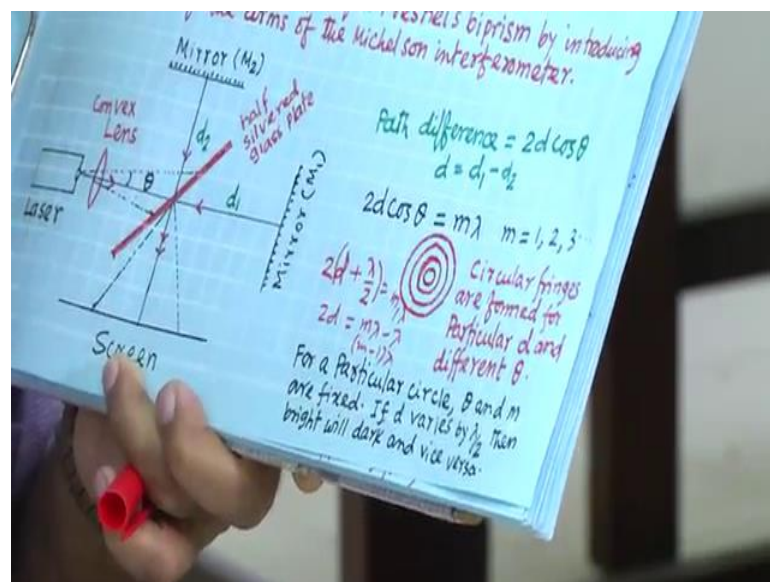 Fresnel's biprism by introducing
the arms of the Michelson interferometer.
Mirror (M2)
Convex
Lens
half
silvered
glass plate
d2
θ
Laser
d1
Mirror (M1)
Screen
Path difference = 2d cosθ
d = d1 - d2
2d cosθ = mλ m = 1, 2, 3...
2(d + λ/2) = mλ
2d = mλ - λ
(m-1)λ
Circular fringes
are formed for
Particular d and
different θ.
For a Particular circle, θ and m
are fixed. If d varies by λ/2 then
bright will dark and vice versa.